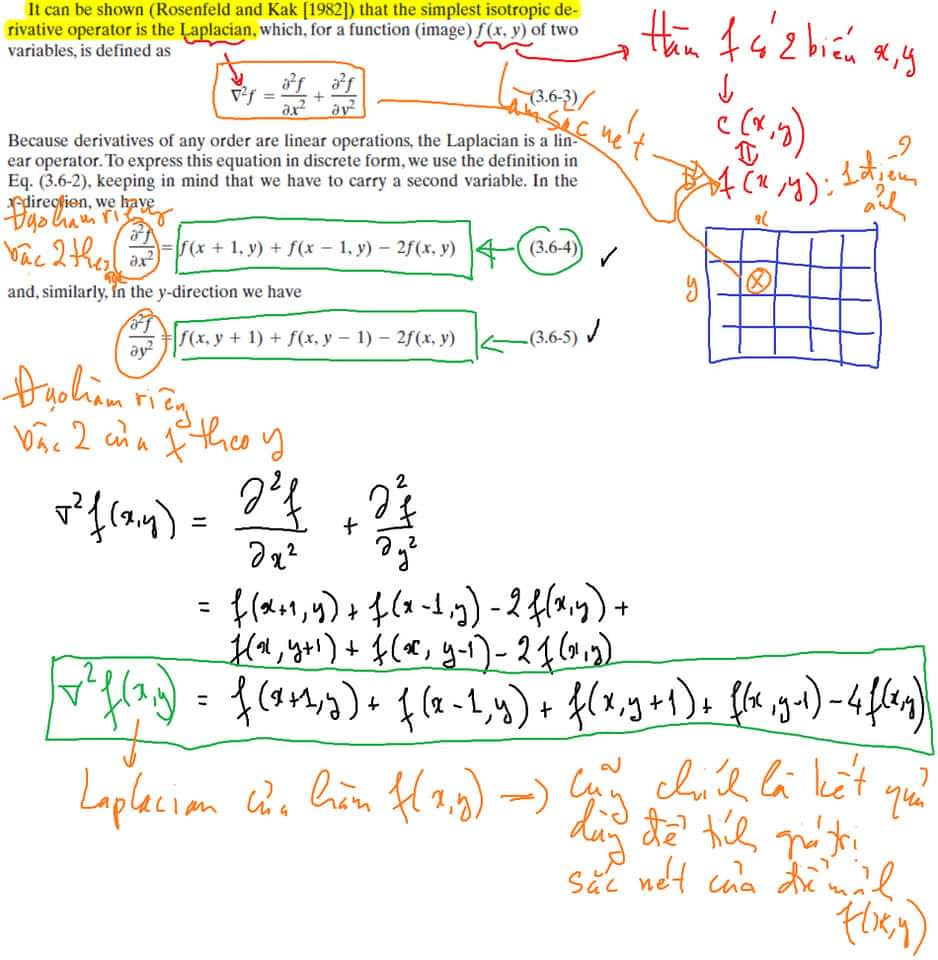 It can be shown (Rosenfeld and Kak [1982]) that the simplest isotropic de-
rivative operator is the Laplacian, which, for a function (image) f(x, y) of two
variables, is defined as
Hàm f có 2 biến x,y
∇²f = ∂²f/∂x² + ∂²f/∂y² (3.6-3)
Làm sắc nét
c(x,y)
f(x,y): 1 điểm ảnh ?
Because derivatives of any order are linear operations, the Laplacian is a lin-
ear operator. To express this equation in discrete form, we use the definition in
Eq. (3.6-2), keeping in mind that we have to carry a second variable. In the
x-direction, we have
Đạo hàm riêng
bậc 2 theo
x
y
∂²f/∂x² = f(x + 1, y) + f(x − 1, y) − 2f(x, y) (3.6-4)
and, similarly, in the y-direction we have
∂²f/∂y² = f(x, y + 1) + f(x, y − 1) − 2f(x, y) (3.6-5)
Đạo hàm riêng
bậc 2 của f theo y
∇²f(x,y) = ∂²f/∂x² + ∂²f/∂y²
= f(x+1,y) + f(x-1,y) - 2f(x,y) +
f(x,y+1) + f(x,y-1) - 2f(x,y)
∇²f(x,y) = f(x+1,y) + f(x-1,y) + f(x,y+1) + f(x,y-1) - 4f(x,y)
Laplacian của hàm f(x,y) => Cũng chính là kết quả
dùng để tính giá trị
sắc nét của điểm ảnh
f(x,y)